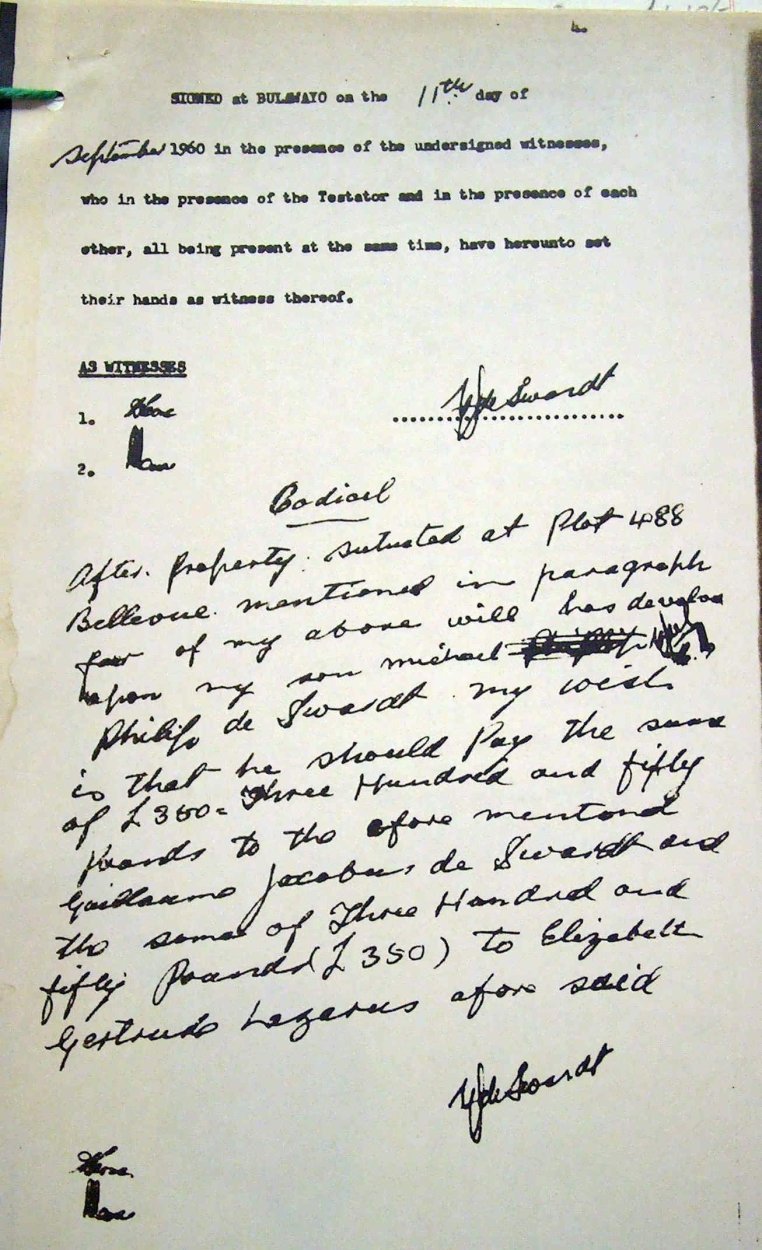 4.
SIGNED at BULAWAYO on the 11th day of
September 1960 in the presence of the undersigned witnesses,
who in the presence of the Testator and in the presence of each
other, all being present at the same time, have hereunto set
their hands as witness thereof.
AS WITNESSES
1.
de Swardt
2.
Codicil
After Property situated at Plot 488
Bellevue mentioned in paragraph
four of my above will has develop
upon my son michael
Philip de Swardt my wish
is that he should Pay the sum
of £350= Three Hundred and fifty
pounds to the afore mentond
Guillaume Jacobus de Swardt and
the some of Three Hundred and
fifty Pounds (£350) to Elizabeth
Gertrude Lazarus afore said
de Swardt